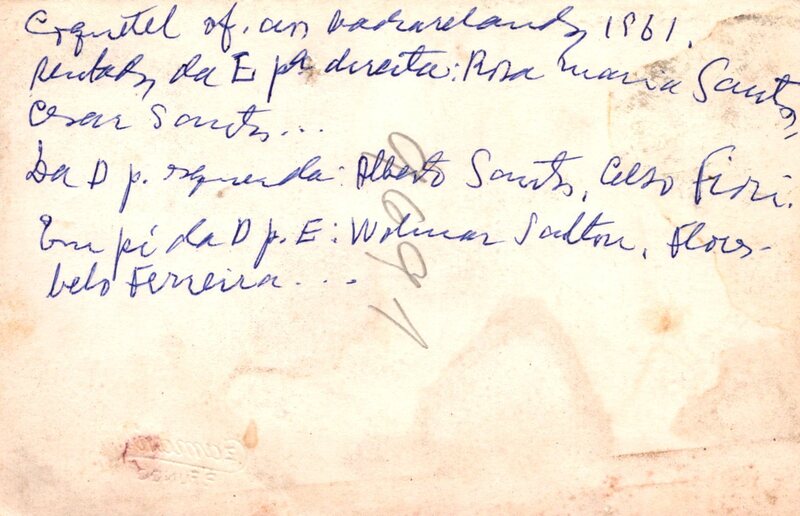 Coquetel of. aos vadrarelandos, 1961.
Sentados da E pª direita: Rosa Maria Santos,
Cesar Santos...
Da D p. esquerda: Alberto Santos, Celso Fiori.
Em pé da D p. E: Wolmar Salton, Flores-
belo Ferreira...